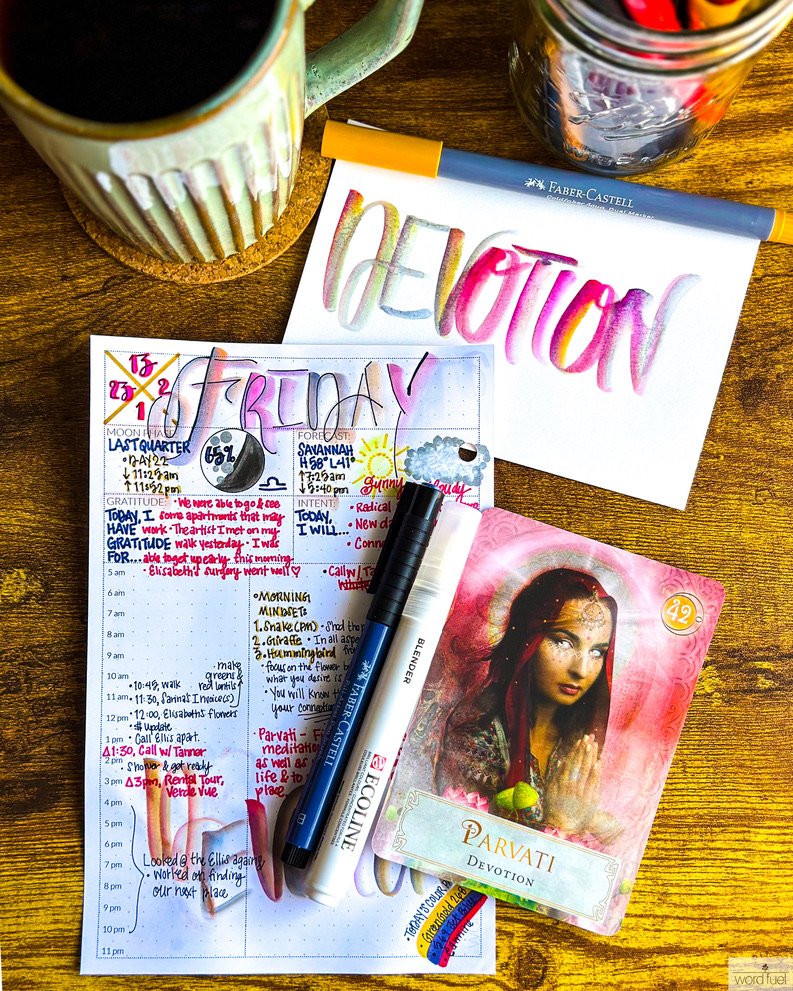 FABER-CASTELL
Goldfaber Aqua Dual Marker
DEVOTION
13
23 2
1
FRIDAY
MOON PHASE:
LAST QUARTER
• DAY 22
↓ 11:25am
↑ 11:52pm
65%
FORECAST:
SAVANNAH
H 58° L 41°
↑ 7:25am
↓ 5:40pm
sunny
cloudy
GRATITUDE:
TODAY, I
HAVE
GRATITUDE
FOR...
• We were able to go & see
some apartments that may
work • The artist I met on my
walk yesterday • I was
able to get up early this morning
• Elisabeth's surgery went well ♡
INTENT:
TODAY,
I WILL...
• Radical
• New
• Conn
• Call w/
5 am
6 am
7 am
8 am
9 am
10 am
11 am
12 pm
1 pm
2 pm
3 pm
4 pm
5 pm
6 pm
7 pm
8 pm
9 pm
10 pm
11 pm
make
greens &
red lentils
• 10:45, walk
• 11:30, Sarina's Invoice(s)
• 12:00, Elisabeth's flowers
• :# update
• Call Ellis apart.
Δ1:30, Call w/ Tanner
• Shower & get ready
Δ3pm, Rental Tour,
Verde Vue
Looked @ the Ellis again &
• worked on finding
our next place
• MORNING
MINDSET:
1. Snake (pm) • Shed the
2. Giraffe • In all
3. Hummingbird
• focus on the flower
what you desire is
• You will know
your connection
Parvati -
meditation
as well as
life & to
place.
TODAY'S COLOR
• Greengold 268
FABER-CASTELL
B
BLENDER
ECOLINE
42
PARVATI
DEVOTION
word fuel